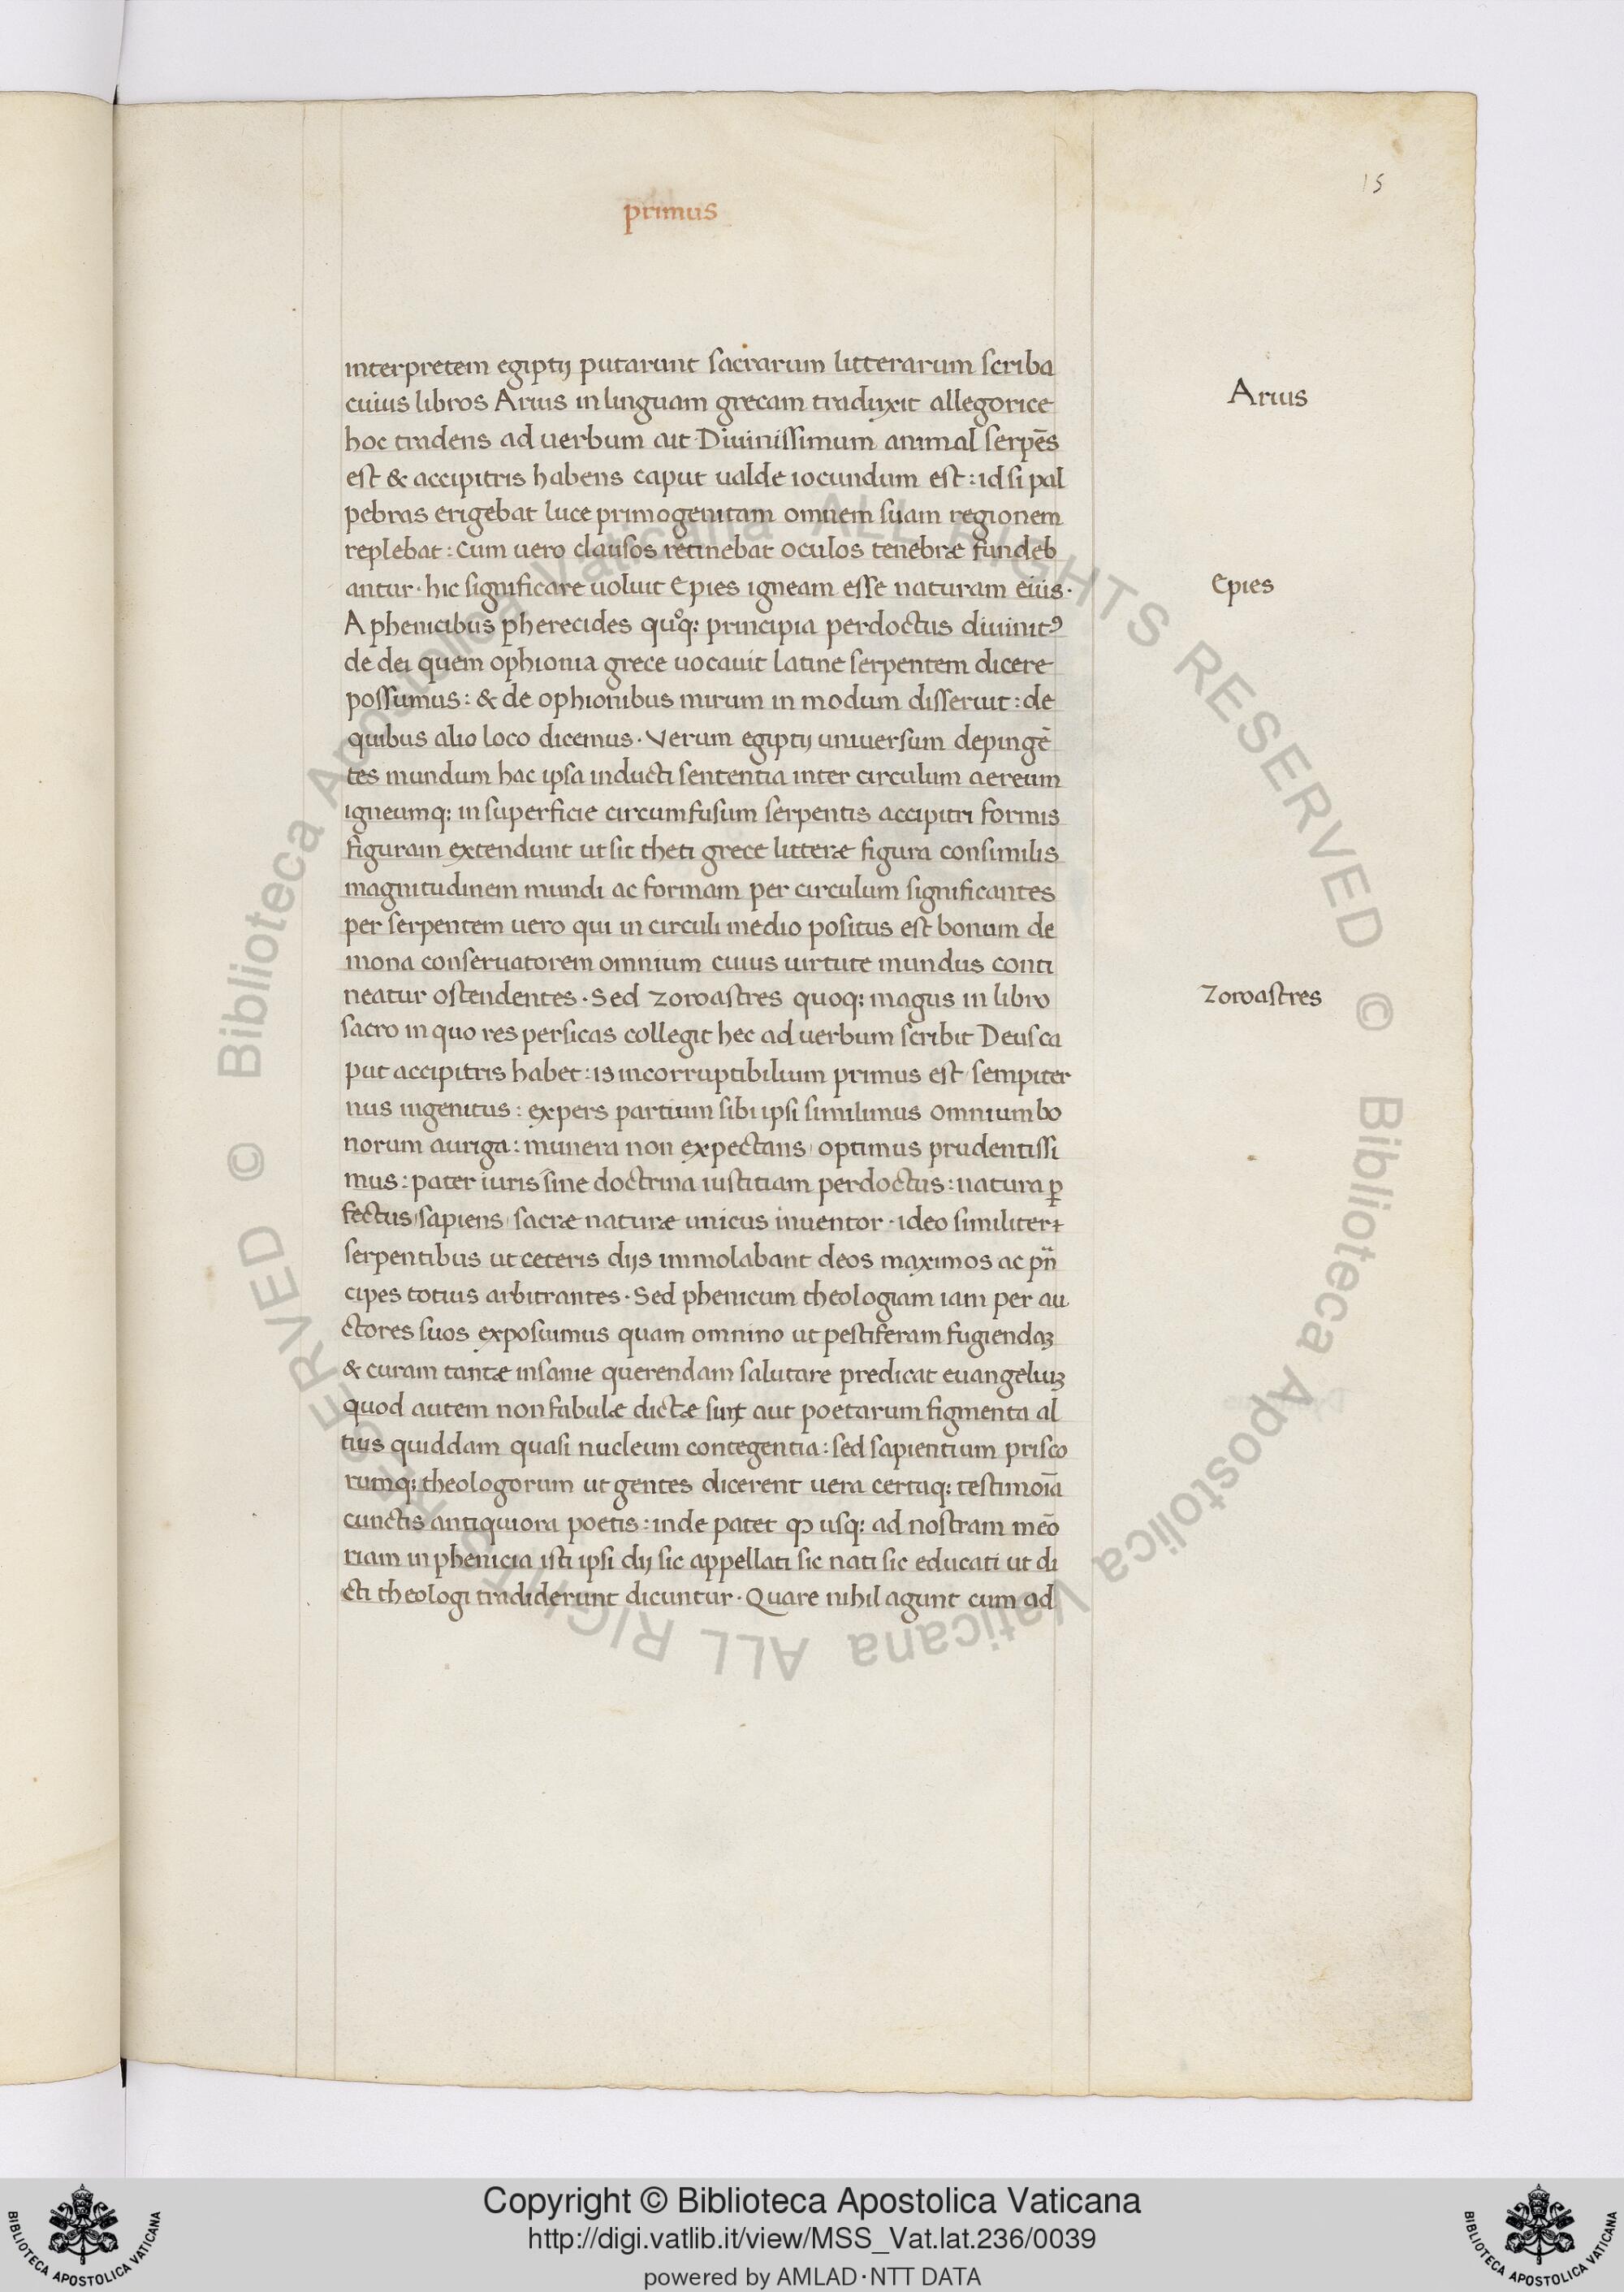 15
primus
interpretem egiptij putarunt sacrarum litterarum scriba
cuius libros Arius in linguam grecam traduxit allegorice
hoc tradens ad uerbum ait · Diuinissimum animal serpēs
est & accipitris habens caput ualde iocundum est : id si pal
pebras erigebat luce primogenitam omnem suam regionem
replebat : cum uero clausos retinebat oculos tenebræ fundeb
antur · hic significare uoluit Epies igneam esse naturam eius ·
A phenicibus pherecides quoq; principia perdoctus diuinitꝰ
de dei quem ophionia grece uocauit latine serpentem dicere
possumus : & de ophionibus mirum in modum disseruit : de
quibus alio loco dicemus · Verum egiptij uniuersum depingē
tes mundum hac ipsa inducti sententia inter circulum aereum
igneumq; in superficie circumfusum serpentis accipitri formis
figuram extendunt ut sit theti grece litteræ figura consimilis
magnitudinem mundi ac formam per circulum significantes
per serpentem uero qui in circuli medio positus est bonum de
mona conseruatorem omnium cuius uirtute mundus conti
neatur ostendentes · Sed zoroastres quoq; magus in libro
sacro in quo res persicas collegit hec ad uerbum scribit Deus ca
put accipitris habet : is incorruptibilium primus est sempiter
nus ingenitus : expers partium sibi ipsi similimus omnium bo
norum auriga : munera non expectans optimus prudentissi
mus : pater iuris sine doctrina iustitiam perdoctus : natura ꝑ
fectus sapiens sacræ naturæ unicus inuentor · ideo similiter
serpentibus ut ceteris dijs immolabant deos maximos ac pn̄
cipes totius arbitrantes · Sed phenicum theologiam iam per au
ctores suos exposuimus quam omnino ut pestiferam fugiendaꝫ
& curam tantæ insanie querendam salutare predicat euangeliuꝫ
quod autem non fabulæ dictæ sint aut poetarum figmenta al
tius quiddam quasi nucleum contegentia : sed sapientium prisco
rumq; theologorum ut gentes dicerent uera certaq; testimoīa
cunctis antiquiora poetis : inde patet ꝙ usq; ad nostram meō
riam in phenicia isti ipsi dij sic appellati sic nati sic educati ut di
cti theologi tradiderunt dicuntur · Quare nihil agunt cum ad
Arius
Epies
Zoroastres
© Biblioteca Apostolica Vaticana ALL RIGHTS RESERVED © Biblioteca Apostolica Vaticana ALL RIGHTS RESERVED
Copyright © Biblioteca Apostolica Vaticana
http://digi.vatlib.it/view/MSS_Vat.lat.236/0039
powered by AMLAD·NTT DATA
BIBLIOTECA APOSTOLICA VATICANA
BIBLIOTECA APOSTOLICA VATICANA